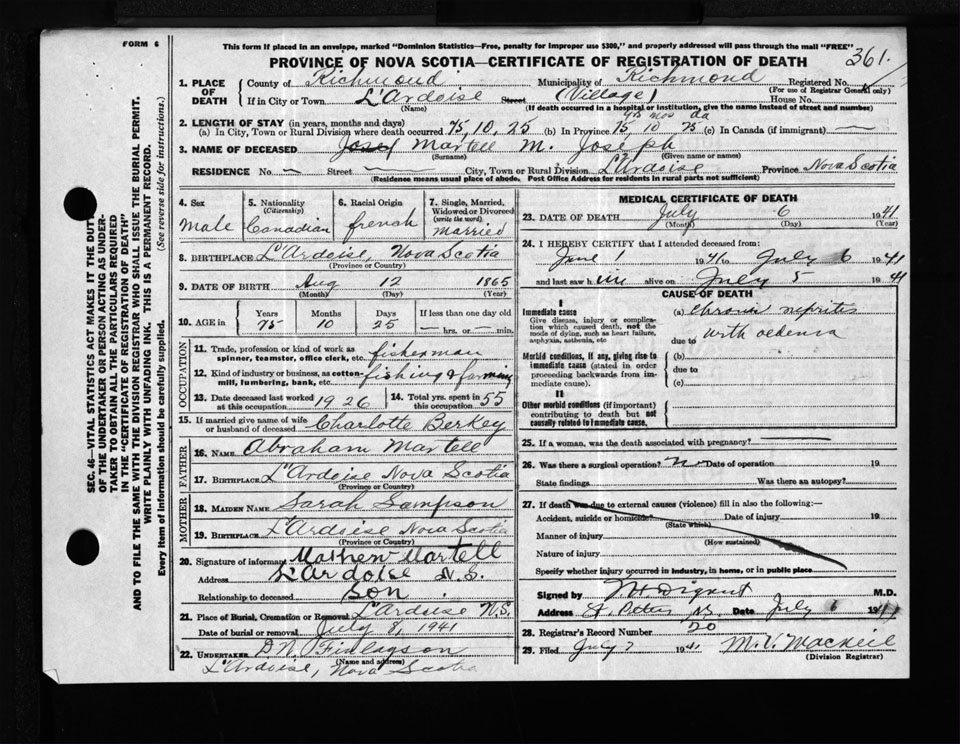 FORM 6
This form if placed in an envelope, marked "Dominion Statistics—Free, penalty for improper use $300," and properly addressed will pass through the mail "FREE"
PROVINCE OF NOVA SCOTIA—CERTIFICATE OF REGISTRATION OF DEATH
361.
1. PLACE OF DEATH
County of Richmond Municipality of Richmond Registered No.
(For use of Registrar General only)
If in City or Town L'Ardoise Street (Village) House No.
(Name) (If death occurred in a hospital or institution, give the name instead of street and number)
2. LENGTH OF STAY (in years, months and days) yrs mos da
(a) In City, Town or Rural Division where death occurred 75, 10, 25 (b) In Province 75, 10 25 (c) In Canada (if immigrant) —
3. NAME OF DECEASED Martell M. Joseph
(Surname) (Given name or names)
RESIDENCE No. — Street — City, Town or Rural Division L'Ardoise Province Nova Scotia
(Residence means usual place of abode. Post Office Address for residents in rural parts not sufficient)
4. Sex Male
5. Nationality (Citizenship) Canadian
6. Racial Origin french
7. Single, Married, Widowed or Divorced (write the word) married
8. BIRTHPLACE L'Ardoise, Nova Scotia
(Province or Country)
9. DATE OF BIRTH Aug 12 1865
(Month) (Day) (Year)
10. AGE in Years Months Days If less than one day old
75 10 25 — hrs. or — min.
OCCUPATION
11. Trade, profession or kind of work as spinner, teamster, office clerk, etc. fisherman
12. Kind of industry or business, as cotton-mill, lumbering, bank, etc. fishing & farming
13. Date deceased last worked at this occupation 1926
14. Total yrs. spent in this occupation 55
15. If married give name of wife or husband of deceased Charlotte Berkey
FATHER
16. NAME Abraham Martell
17. BIRTHPLACE L'Ardoise Nova Scotia
(Province or Country)
MOTHER
18. MAIDEN NAME Sarah Sampson
19. BIRTHPLACE L'Ardoise Nova Scotia
(Province or Country)
20. Signature of informant Mathew Martell
Address L'Ardoise N.S.
Relationship to deceased Son
21. Place of Burial, Cremation or Removal L'Ardoise N.S.
Date of burial or removal July 8, 1941
22. UNDERTAKER D N Finlayson
(Name and address)
L'Ardoise, Nova Scotia
MEDICAL CERTIFICATE OF DEATH
23. DATE OF DEATH July 6 1941
(Month) (Day) (Year)
24. I HEREBY CERTIFY that I attended deceased from:
June 1 1941 to July 6 1941
and last saw him alive on July 5 1941
CAUSE OF DEATH
I
Immediate cause
Give disease, injury or complication which caused death, not the mode of dying, such as heart failure, asphyxia, asthenia, etc
(a) chronic nephritis
due to with oedema
Morbid conditions, if any, giving rise to immediate cause (stated in order proceeding backwards from immediate cause).
(b)
due to
(c)
II
Other morbid conditions (if important) contributing to death but not causally related to immediate cause.
25. If a woman, was the death associated with pregnancy?
26. Was there a surgical operation? no Date of operation 19
State findings Was there an autopsy?
27. If death was due to external causes (violence) fill in also the following:—
Accident, suicide or homicide? Date of injury 19
(State which)
Manner of injury
(How sustained)
Nature of injury
Specify whether injury occurred in industry, in home, or in public place
Signed by M.D.
Address St. Peters NS Date July 6 1941
28. Registrar's Record Number 20
29. Filed July 7 1941 M. V. MacNeil
(Division Registrar)
SEC. 46—VITAL STATISTICS ACT MAKES IT THE DUTY
OF THE UNDERTAKER OR PERSON ACTING AS UNDER-
TAKER TO OBTAIN ALL THE PARTICULARS REQUIRED
IN THE "CERTIFICATE OF REGISTRATION OF DEATH"
AND TO FILE THE SAME WITH THE DIVISION REGISTRAR WHO SHALL ISSUE THE BURIAL PERMIT.
WRITE PLAINLY WITH UNFADING INK. THIS IS A PERMANENT RECORD.
Every item of information should be carefully supplied. (See reverse side for instructions.)